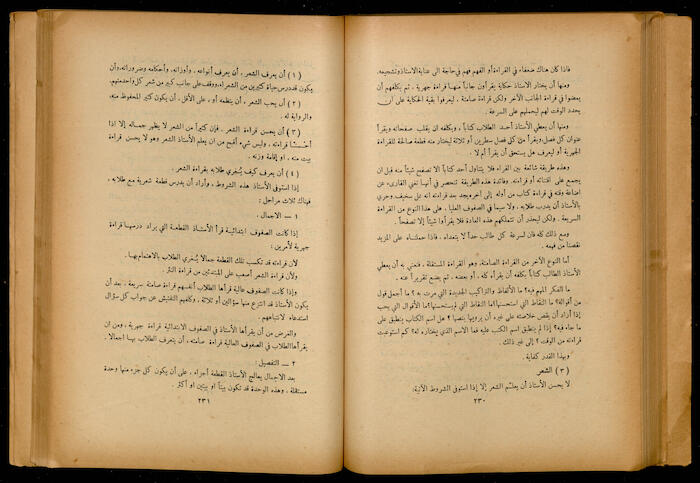 فاذا كان هناك ضعفاء في القراءة أو الفهم فهم في حاجة الى عناية الاستاذ وتشجيعه.
ومنها أن يختار الاستاذ حكاية يقرأون جانباً منها قراءة جهرية ، ثم يكلفهم أن
يمعنوا في قراءة الجانب الآخر ولكن قراءة صامتة ، ليعرفوا بقية الحكاية على أن
يحدد الوقت لهم ليحملهم على السرعة .
ومنها أن يعطي الأستاذ أحد الطلاب كتاباً ، ويكلفه ان يقلب صفحاته ويقرأ
عنوان كل فصل، ويقرأ من كل فصل سطرين أو ثلاثة ليختار منه قطعة صالحة للقراءة
الجهرية أو ليعرف هل يستحق أن يقرأ أم لا .
وهذه طريقة شائعة بين القراء فلا يتناول أحد كتاباً الا تصفح شيئاً منه قبل ان
يجمع على اقتنائه أو قراءته. وفائدة هذه الطريقة تنحصر في أنها تقي القارىء عن
اضاعة وقته في قراءة كتاب من أوله إلى آخره يجد بعد قراءته انه سخيف وحري
بالأستاذ أن يدرب طلابه ، ولا سيما في الصفوف العليا ، على هذا النوع من القراءة
السريعة . ولكن ليحذر أن تتملكهم هذه العادة فلا يقرأوا شيئاً إلا تصفحاً .
ومع ذلك كله فان لسرعة كل طالب حداً لا يتعداه ، فاذا حملناه على المزيد
نقصنا من فهمه .
أما النوع الآخر من القراءة الصامتة، وهو القراءة المستقلة ، فنعني به أن يعطي
الأستاذ الطالب كتاباً يكلفه أن يقرأه كله ، أو بعضه ، ثم يضع تقريراً عنه .
ما الفكر المهم فيه؟ ما الألفاظ والتراكيب الجديدة التي مرت به ؟ ما أجمل قول
من أقواله؟ ما النقاط التي استحسنها؟ ما النقاط التي لم يستحسنها؟ ما الأقوال التي يحب
إذا أراد أن يقص خلاصته على غيره أن يرويها بنصها ؟ هل اسم الكتاب ينطبق على
ما جاء فيه؟ إذا لم ينطبق اسم الكتب عليه فما الاسم الذي يختاره له؟ كم استوعبت
قراءته من الوقت ؟ إلى غير ذلك .
وبهذا القدر كفاية .
( ٣ ) الشعر
لا يحسن الأستاذ أن يعلم الشعر إلا إذا استوفى الشروط الآتية:
٢٣٠
( ١ ) أن يعرف الشعر ، أن يعرف أنواعه ، وأوزانه، وأحكامه وضروراته، وأن
يكون قد درس حياة كثيرين من الشعراء، ووقف على جانب كبير من شعر كل واحد منهم.
( ٢ ) أن يحب الشعر ، أن ينظمه أو ، على الأقل ، أن يكون كثير المحفوظ منه،
والرواية له .
( ٣ ) أن يحسن قراءة الشعر . فإن كثيراً من الشعر لا يظهر جماله إلا اذا
أحسنا قراءته ، وليس شيء أقبح من ان يعلم الأستاذ الشعر وهو لا يحسن قراءة
بيت منه ، او إقامة وزنه .
( ٤ ) أن يعرف كيف يُغري طلابه بقراءة الشعر .
إذا استوفى الأستاذ هذه الشروط ، وأراد أن يدرس قطعة شعرية مع طلابه ،
فهناك ثلاث مراحل :
١ – الاجمال .
إذا كانت الصفوف ابتدائية قرأ الأستاذ القطعة التي يراد درسها قراءة
جهرية لأمرين :
لأن قراءته قد تكسب تلك القطعة جمالا يُغري الطلاب بالاهتمام بها .
ولأن قراءة الشعر أصعب على المبتدئين من قراءة النثر .
وإذا كانت الصفوف عالية قرأها الطلاب أنفسهم قراءة صامتة سريعة ، بعد أن
يكون الأستاذ قد انتزع منها سؤالين أو ثلاثة ، وكلفهم التفتيش عن جواب كل سؤال
استدعاء لانتباههم .
والغرض من أن يقرأها الأستاذ في الصفوف الابتدائية قراءة جهرية ، ومن ان
يقرأها الطلاب في الصفوف العالية قراءة صامتة، أن يتعرف الطلاب بها اجمالا .
٢ – التفصيل :
بعد الاجمال يعالج الأستاذ القطعة أجزاء ، على أن يكون كل جزء منها وحدة
مستقلة ، وهذه الوحدة قد تكون بيتاً او بيتين او أكثر .
٢٣١